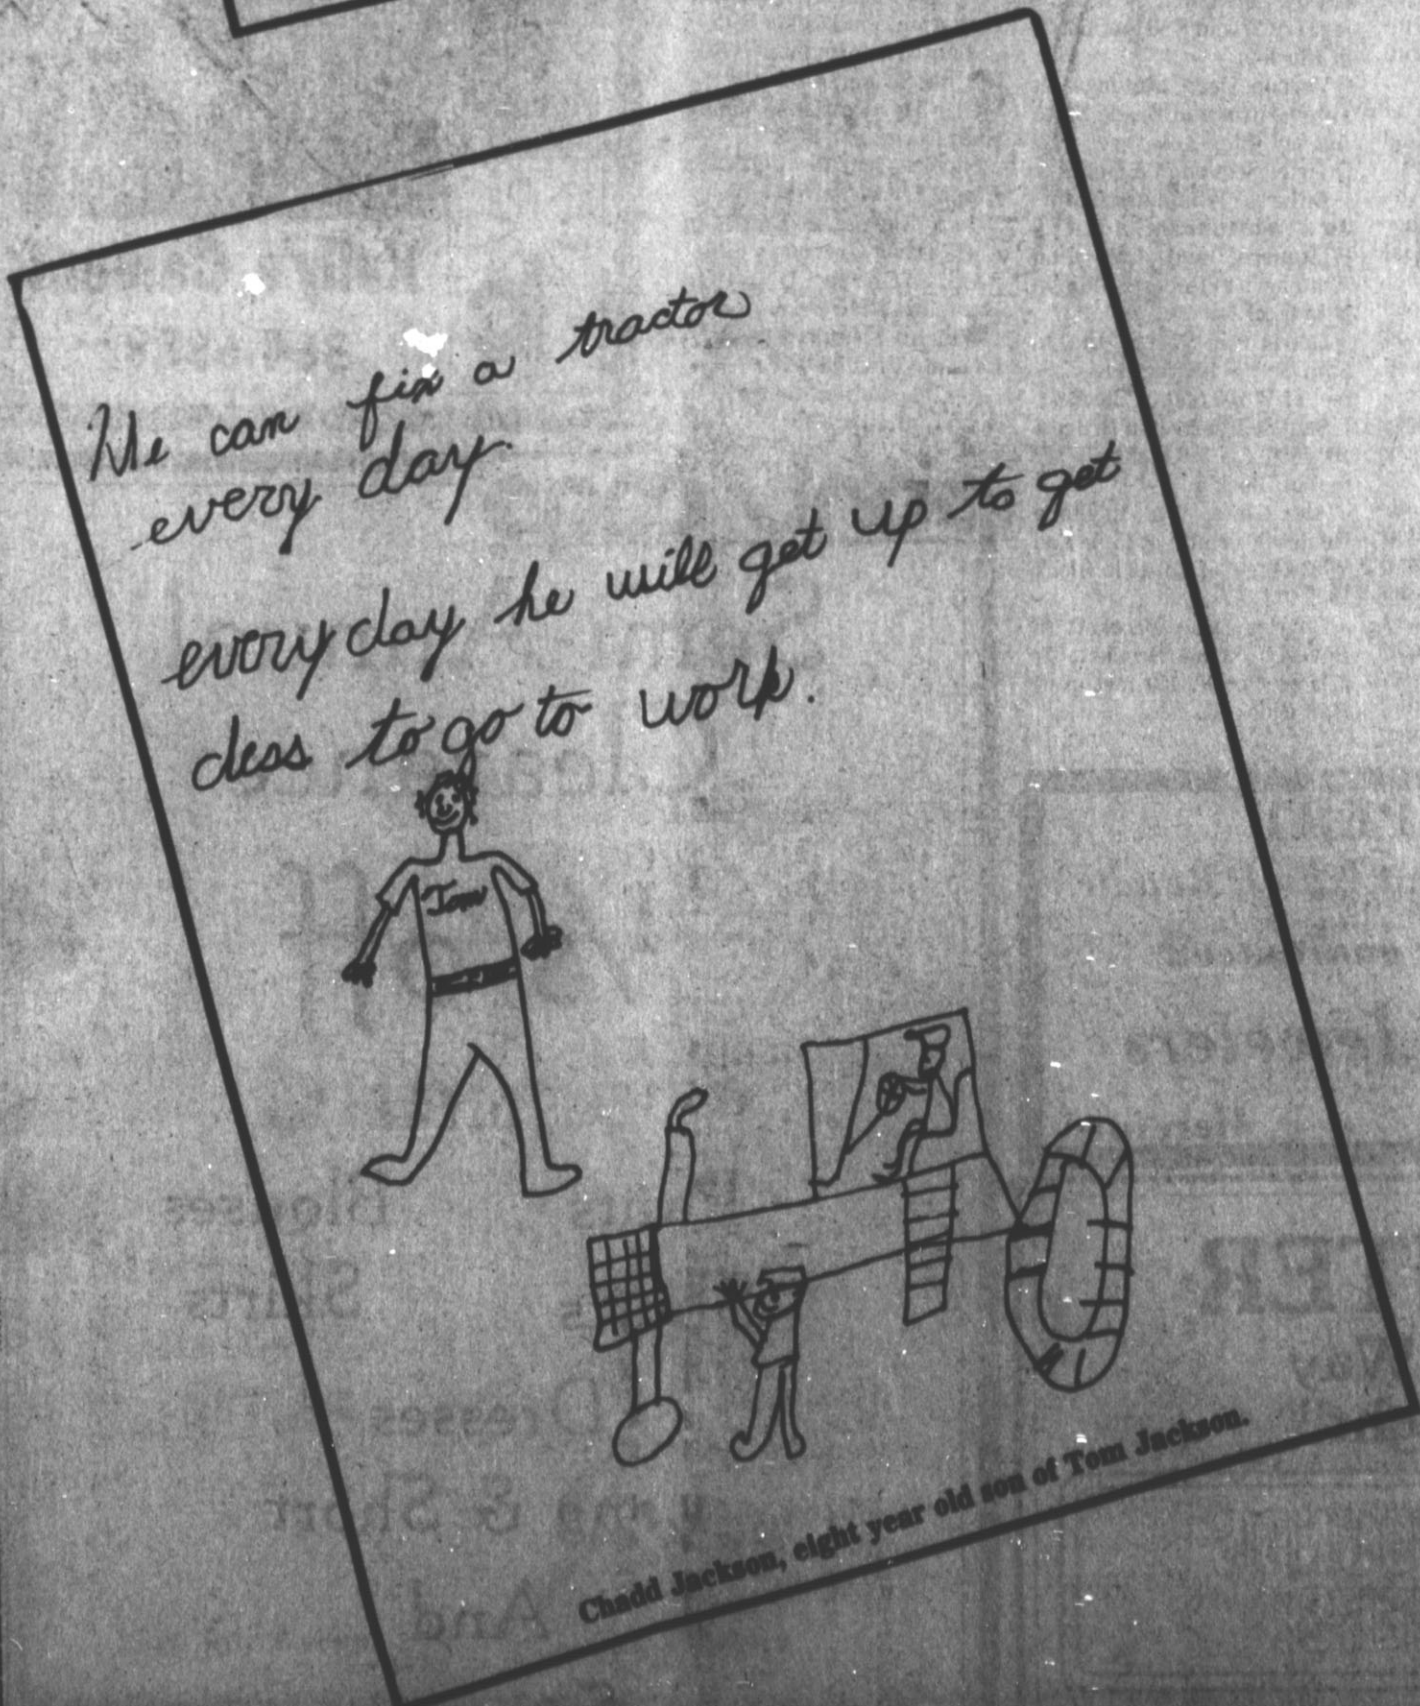 He can fix a tractor
every day.
every day he will get up to get
dess to go to work.
Tom
Chadd Jackson, eight year old son of Tom Jackson.